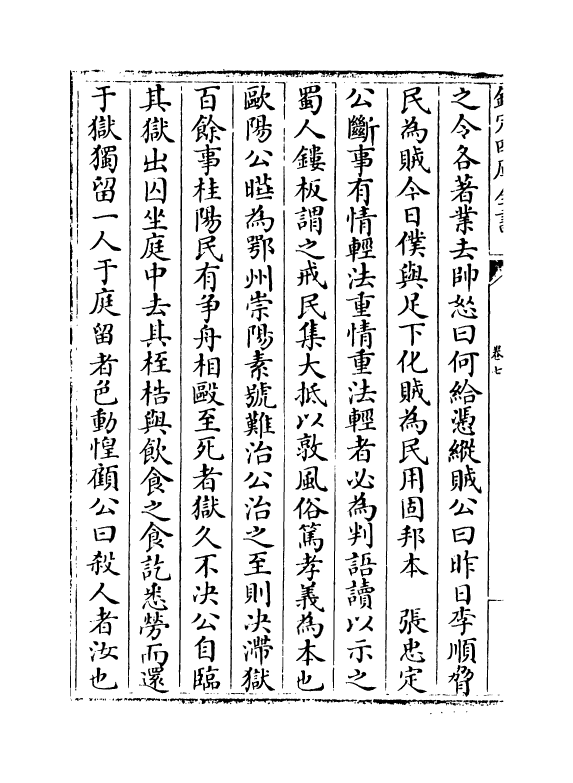 欽定四庫全書
卷七
之令各著業去帥怒曰何給憑縱賊公曰昨日李順脅
民為賊今日僕與足下化賊為民用固邦本　張忠定
公斷事有情輕法重情重法輕者必為判語讀以示之
蜀人鏤板謂之戒民集大抵以敦風俗篤孝義為本也
歐陽公曄為鄂州崇陽素號難治公治之至則決滯獄
百餘事桂陽民有争舟相毆至死者獄久不决公自臨
其獄出囚坐庭中去其桎梏與飲食之食訖悉勞而還
于獄獨留一人于庭留者色動惶顧公曰殺人者汝也